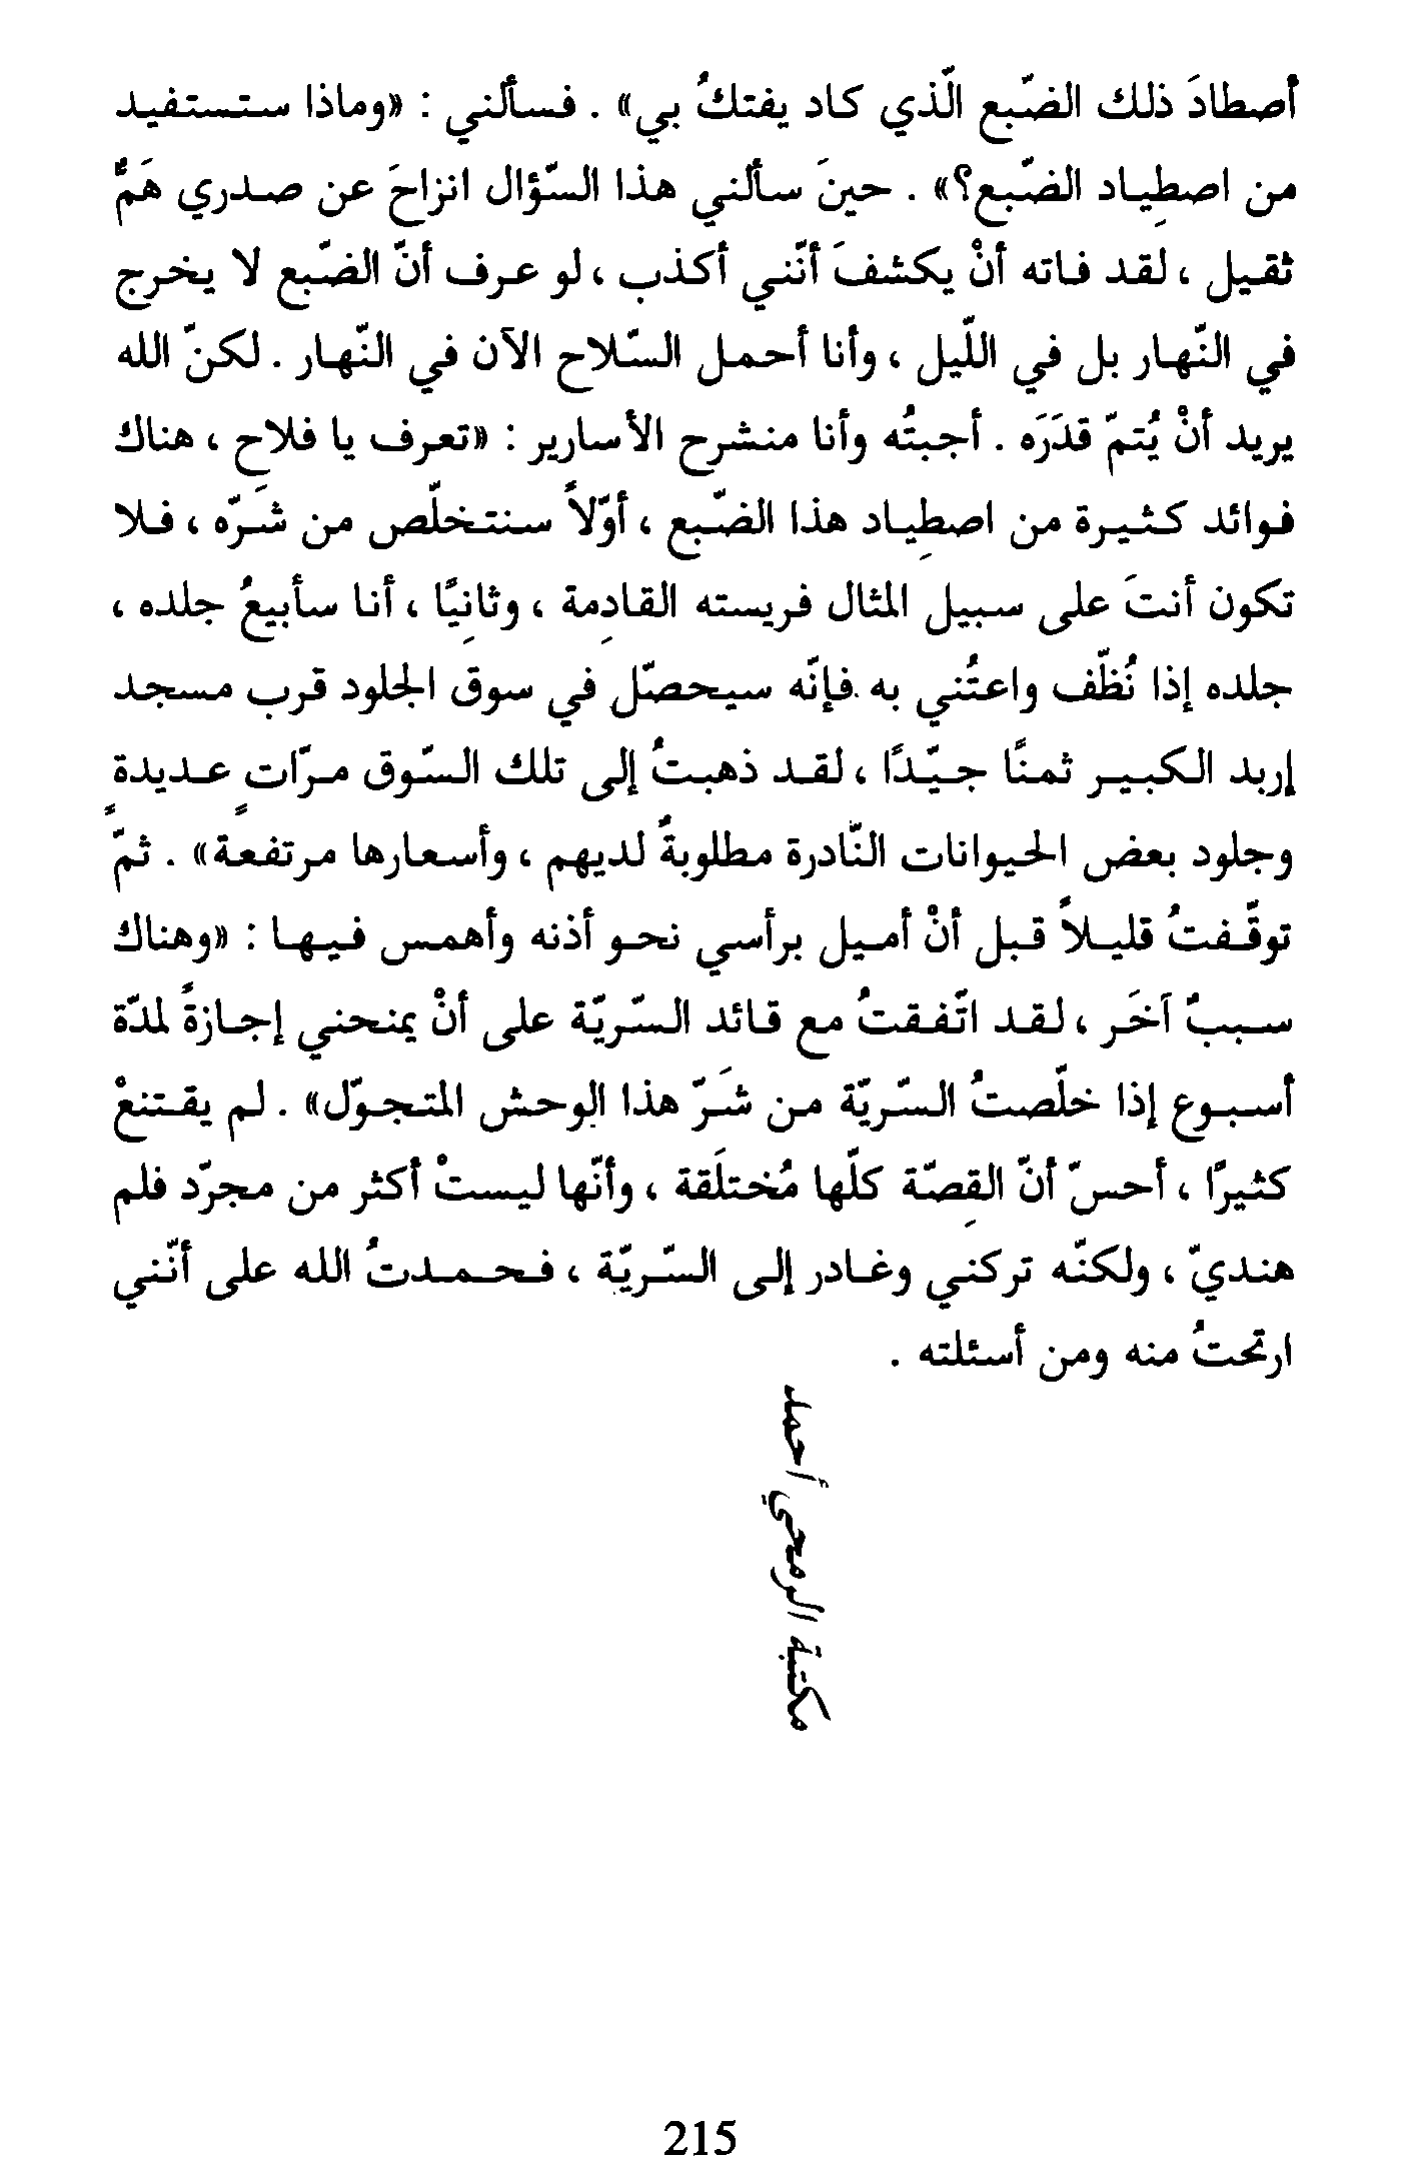 أصطادَ ذلك الضّبع الّذي كاد يفتكُ بي» . فسألني : «وماذا ستستفيد
من اصطِياد الضّبع؟» . حينَ سألني هذا السّؤال انزاحَ عن صدري هَمٌّ
ثقيل ، لقد فاته أنْ يكشفَ أنّني أكذب ، لو عرف أنّ الضّبع لا يخرج
في النّهار بل في اللّيل ، وأنا أحمل السّلاح الآن في النّهار . لكنّ الله
يريد أنْ يُتمّ قدَرَه . أجبتُه وأنا منشرح الأسارير : «تعرف يا فلاحِ ، هناك
فوائد كثيرة من اصطِياد هذا الضّبع ، أوّلاً سنتخلّص من شَرّه ، فلا
تكون أنتَ على سبيل المثال فريسته القادِمة ، وثانِيًا ، أنا سأبيعُ جلده ،
جلده إذا نُظّف واعتُني به فإنّه سيحصّل في سوق الجلود قرب مسجد
إربد الكبير ثمنًا جيّدًا ، لقد ذهبتُ إلى تلك السّوق مرّاتٍ عديدةٍ
وجلود بعض الحيوانات النّادرة مطلوبةٌ لديهم ، وأسعارها مرتفعة» . ثمّ
توقّفتُ قليلاً قبل أنْ أميل برأسي نحو أذنه وأهمس فيها : «وهناك
سببٌ آخَر ، لقد اتّفقتُ مع قائد السّريّة على أنْ يمنحني إجازةً لمدّة
أسبوع إذا خلّصتُ السّريّة من شَرّ هذا الوحش المتجوّل» . لم يقتنعْ
كثيرًا ، أحسّ أنّ القِصّة كلّها مُختلَقة ، وأنّها ليستْ أكثر من مجرّد فلم
هنديّ ، ولكنّه تركني وغادر إلى السّريّة ، فحمدتُ الله على أنّني
ارتحتُ منه ومن أسئلته .
مكتبة الرمحي أحمد
215